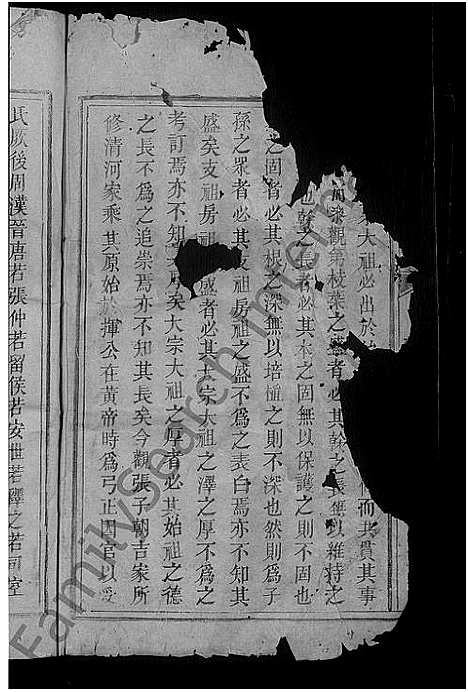 大祖必出於
而共貫其事
觀第枝葉之盛者必其幹之長無以維持之
也幹之長者必其本之固無以保護之則不固也
之固者必其根之深無以培植之則不深也然則爲子
孫之眾者必其支祖房祖之盛不爲之表白焉亦不知其
盛矣支祖房祖盛者必其大宗大祖之澤之厚不爲之
考訂焉亦不知厚矣大宗大祖之厚者必其始祖之德
之長不爲之追崇焉亦不知其長矣今觀張子朝吉家所
修清河家乘其原始於揮公在黃帝時爲弓正因官以受
氏厥後周漢晉唐若張仲若留侯若安世若之若司空
FamilySearch International